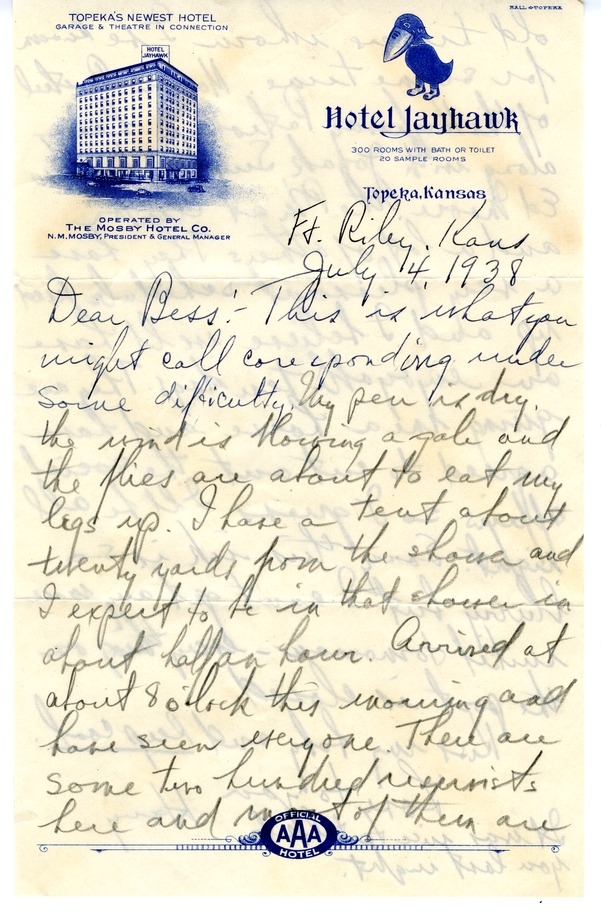 HALL-TOPEKA
TOPEKA'S NEWEST HOTEL
GARAGE & THEATRE IN CONNECTION
HOTEL
JAYHAWK
Hotel Jayhawk
300 ROOMS WITH BATH OR TOILET
20 SAMPLE ROOMS
Topeka, Kansas
OPERATED BY
THE MOSBY HOTEL CO.
N.M. MOSBY, PRESIDENT & GENERAL MANAGER
Ft. Riley, Kans
July 4, 1938
Dear Bess:- This is what you
might call corresponding under
some difficulty. My pen is dry.
the wind is blowing a gale and
the flies are about to eat my
legs up. I have a tent about
twenty yards from the shower and
I expect to be in that shower in
about half an hour. Arrived at
about 8 o'clock this morning and
have seen everyone. There are
some two hundred reservists
here and most of them are
OFFICIAL
AAA
HOTEL